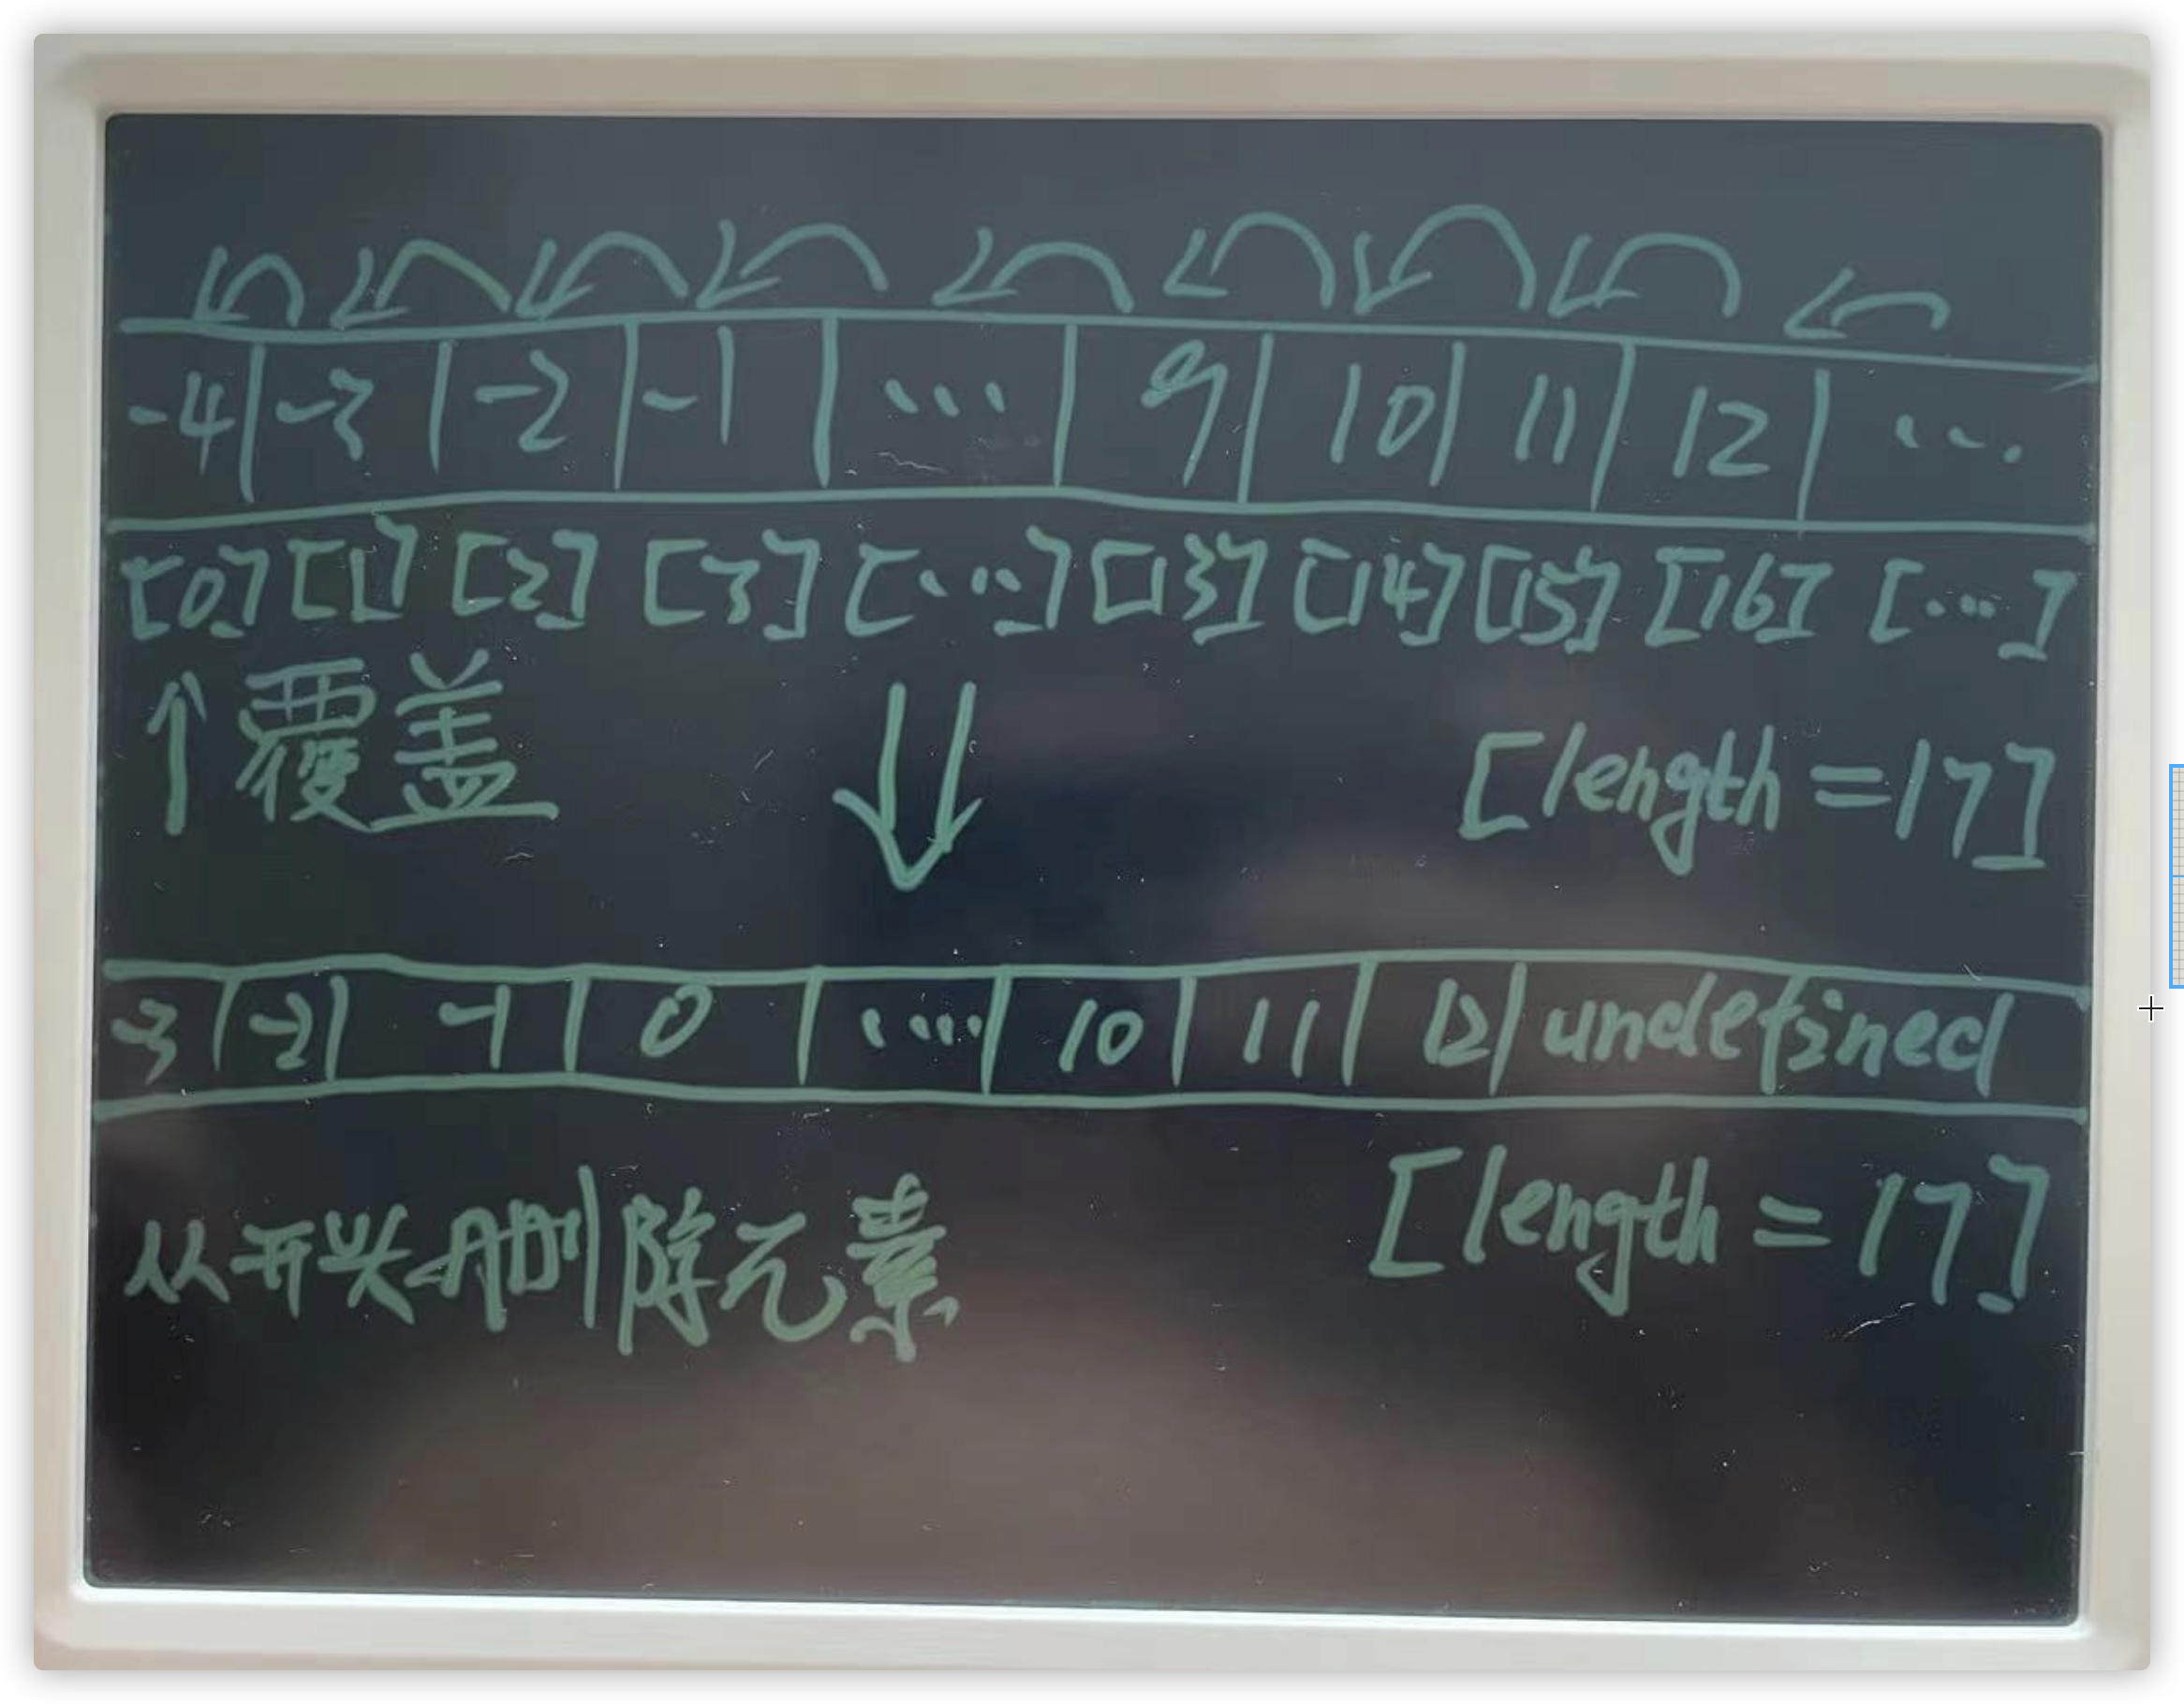 -4 -3 -2 -1 ... 9 10 11 12 ...
[0] [1] [2] [3] [...] [13] [14] [15] [16] [...]
↑覆盖
[length=17]
-3 -2 -1 0 .... 10 11 12 undefined
从开头删除元素
[length=17]